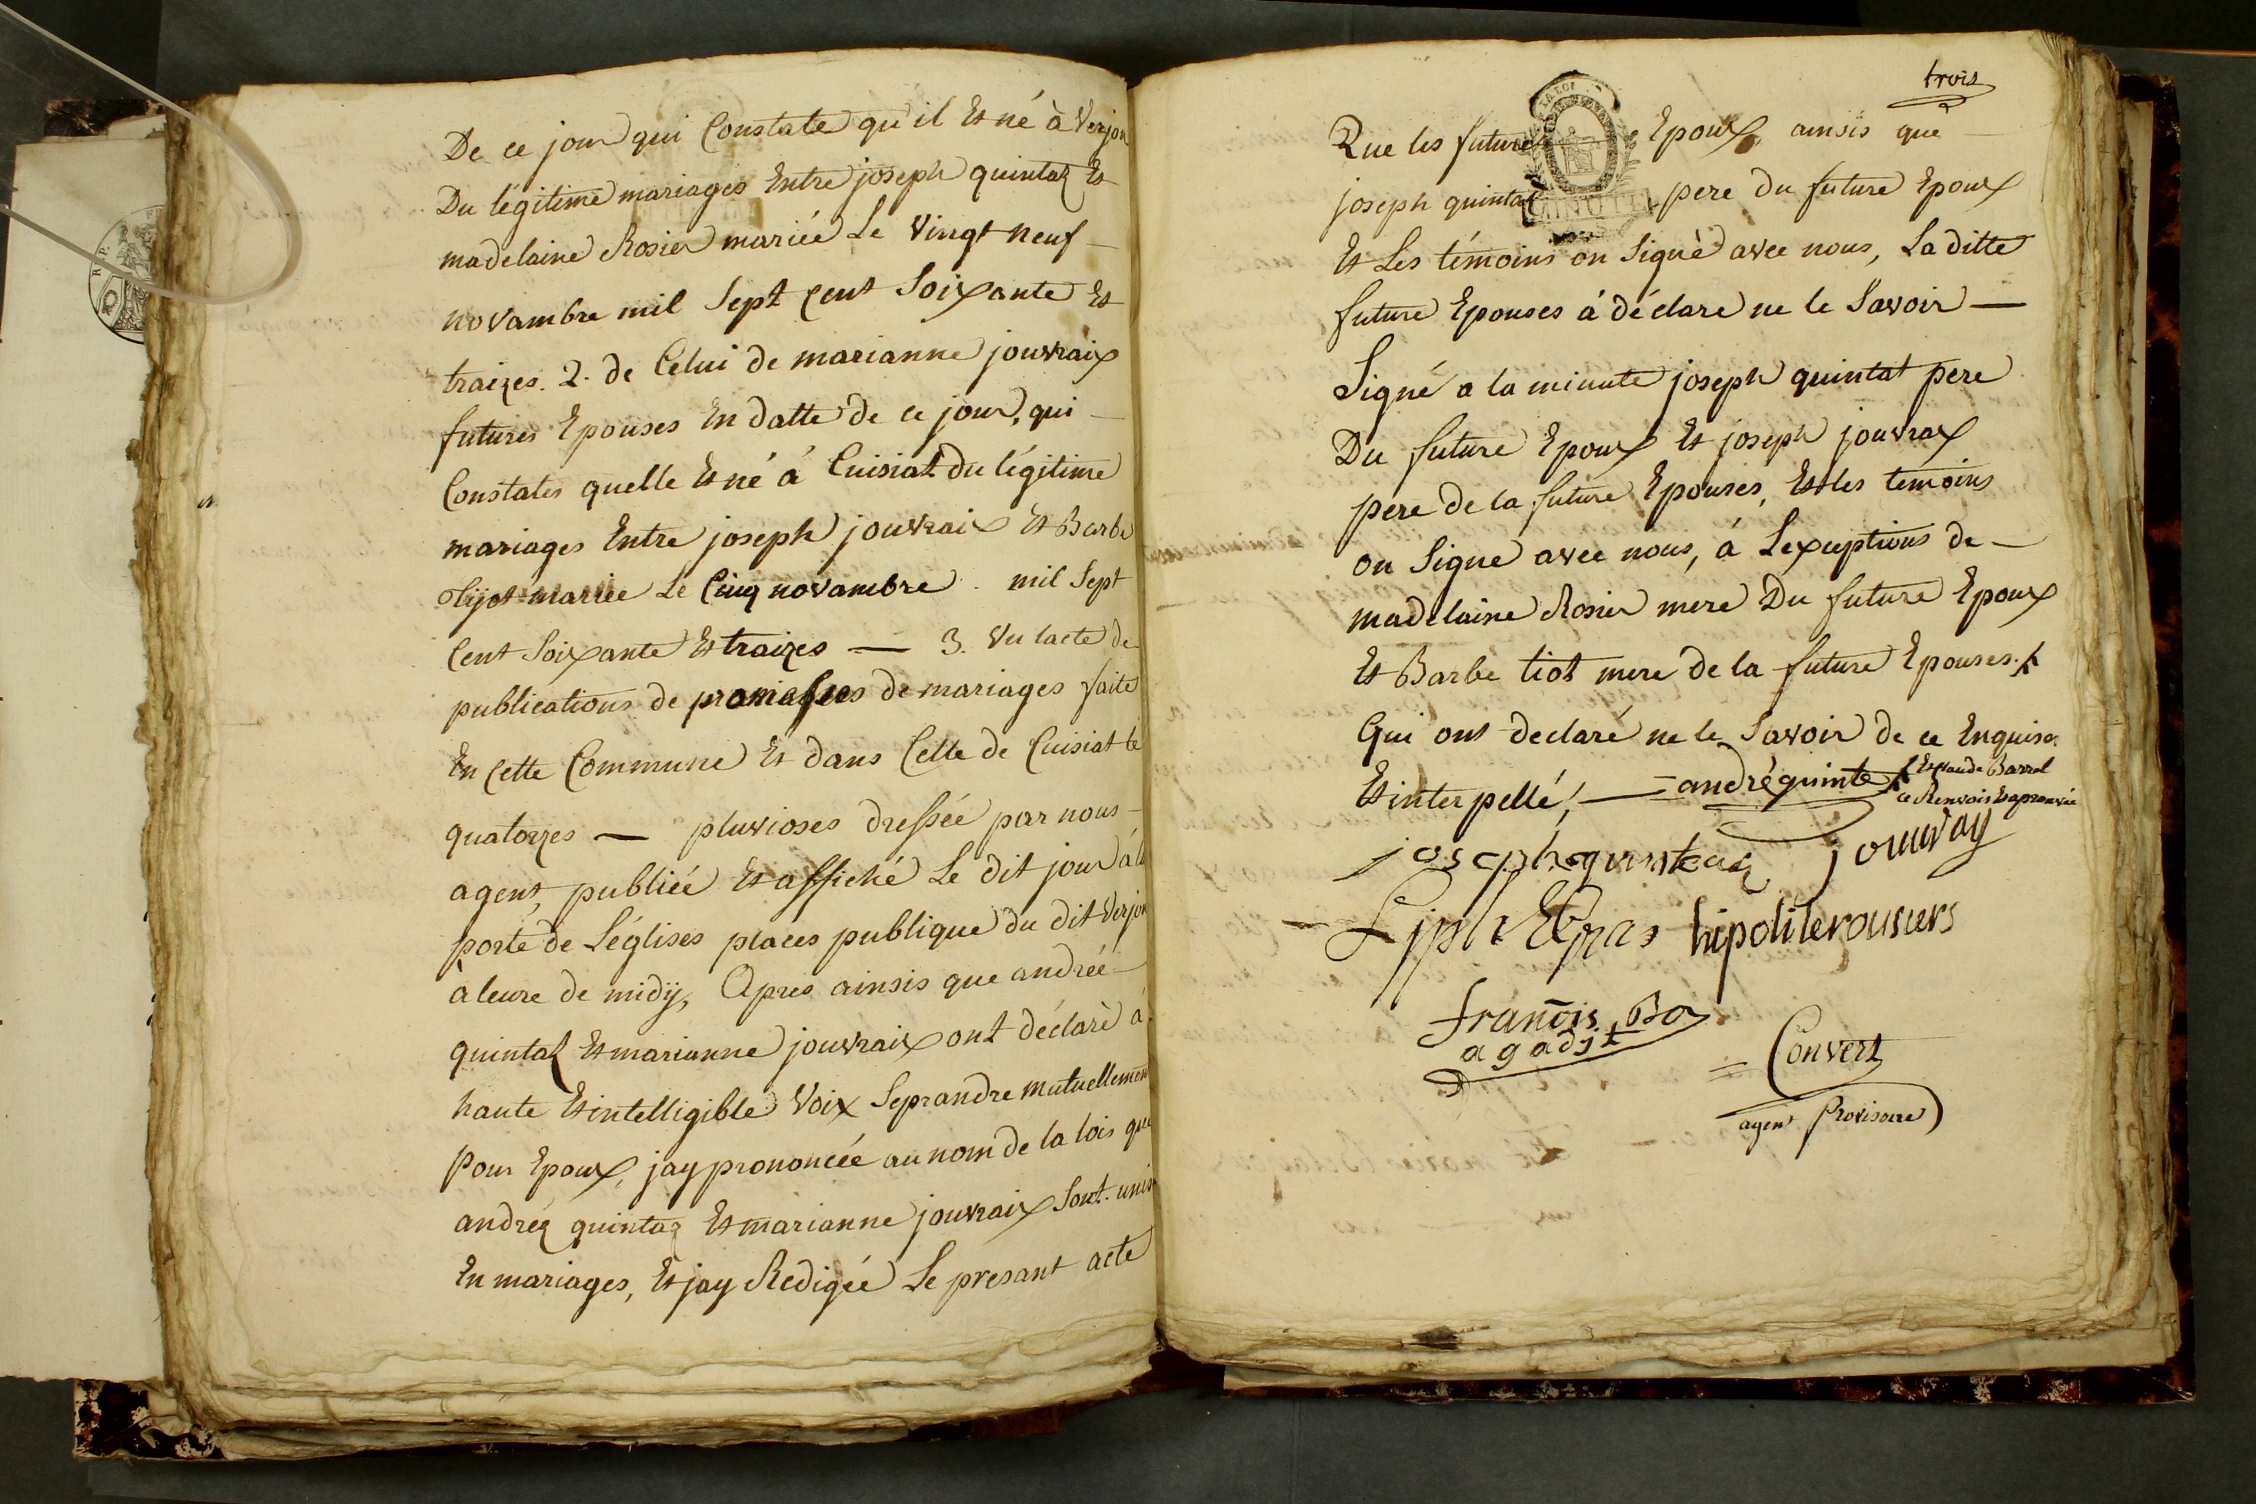 De ce jour qui Constate qu'il Est né à Verjon
Du légitime mariages Entre joseph quintaz Et
madelaine Rosier mariée Le vingt neuf
novambre mil Sept Cent Soixante Et
traizes. 2. de Celui de marianne jouvraix
futures Epouses En datte de ce jour, qui
Constates quelle Est né à Cuisiat Du légitime
mariages Entre joseph jouvraix Et Barbe
mariée Le Cinq novambre mil Sept
Cent Soixante Et traizes — 3. Vu lacte de
publications de promesses de mariages faite
En Cette Commune Et dans Celle de Cuisiat le
quatorzes — pluvioses dressée par nous
agent, publiée Et affiché Le dit jour à la
porte de Léglises places publique du dit Verjon
à leure de midÿ, Apres ainsis que andrée
quintaz Et marianne jouvraix ont déclaré à
haute Et intelligible Voix Seprandre mutuellement
Pour Epoux, jay prononcée au nom de la lois que
andréz quintaz Et marianne jouvraix Sont unis
En mariages, Et jay Redigée Le presant acte
trois
LA LOI
Que les future Epoux, ainsis que
joseph quintaz pere Du future Epoux
Et Les témoins on Signé avec nous, La ditte
future Epouses à déclare ne le Savoir —
Signé a la minute joseph quintat pere
Du future Epoux Et joseph jouvrax
pere de la future Epouses, Et les temoins
on Signe avec nous, à Lexceptions de —
madelaine Rosier mere Du future Epoux
Et Barbe tiot mere de la future Epouses
Qui ont declaré ne le Savoir de ce Enquise
Et interpellé, — andréquinte
Et Claude Barral
ce Renvois Est aprouvée
josephquintaz jouuray
hipoliterousurs
françis Bo
agadjt
Convert
agent Provisoire